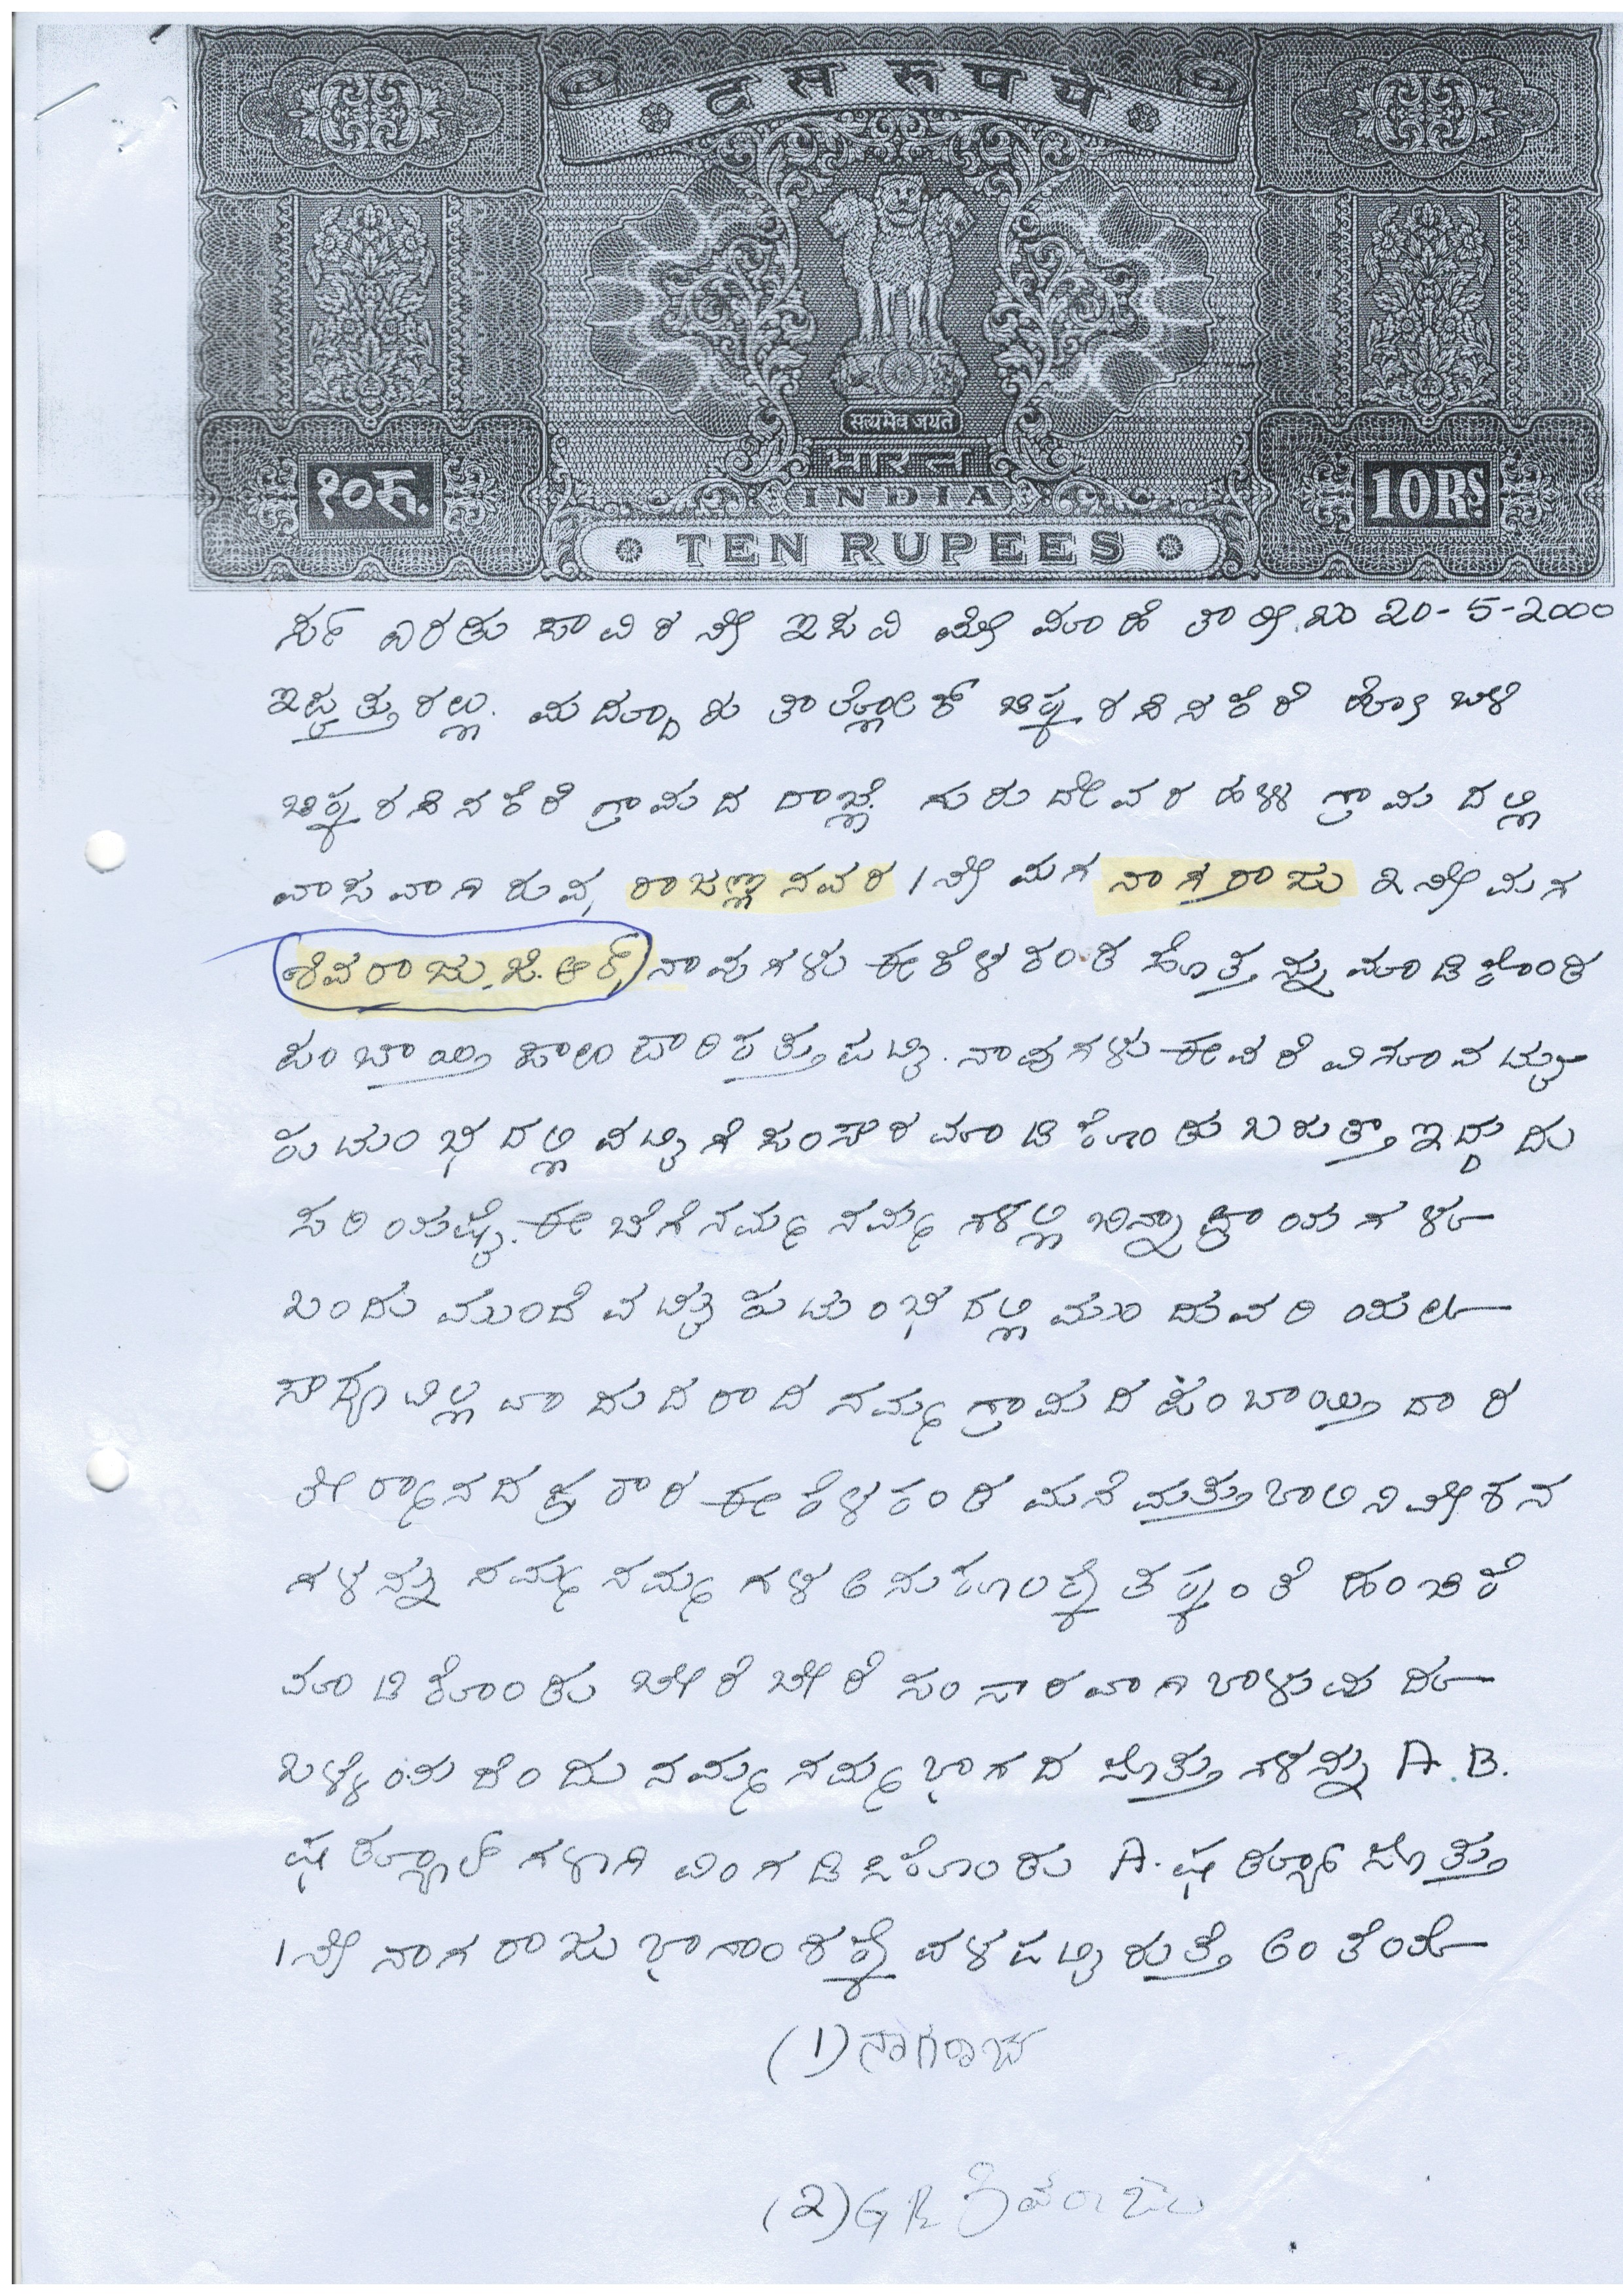 दस रुपये
सत्यमेव जयते
भारत
INDIA
१०रु.
10Rs.
TEN RUPEES
ಸನ್ ಎರಡು ಸಾವಿರನೇ ಇಸವಿ ಮೇ ಮಾಹೆ ತಾರೀಖು 20-5-2000
ಇಪ್ಪತ್ತರಲ್ಲು. ಮದ್ದೂರು ತಾಲ್ಲೋಕ್ ಚಿಕ್ಕರಸಿನಕೆರೆ ಹೋಬಳಿ
ಚಿಕ್ಕರಸಿನಕೆರೆ ಗ್ರಾಮದ ದಾಖ್ಲೆ ಗುರುದೇವರಹಳ್ಳಿ ಗ್ರಾಮದಲ್ಲಿ
ವಾಸವಾಗಿರುವ, ರಾಜಣ್ಣನವರ 1ನೇ ಮಗ ನಾಗರಾಜು 2ನೇ ಮಗ
ಶಿವರಾಜು.ಜಿ.ಆರ್, ನಾವುಗಳು ಈ ಕೆಳಕಂಡ ಸೊತ್ತನ್ನು ಮಾಡಿಕೊಂಡ
ಪಂಚಾಯ್ತಿ ಪಾಲುಪಾರಿಕತ್ತು ಪಟ್ಟಿ. ನಾವುಗಳು ಈವರೆವಿಗೂ ವಟ್ಟು
ಕುಟುಂಭದಲ್ಲಿ ವಟ್ಟಿಗೆ ಸಂಸಾರ ಮಾಡಿಕೊಂಡು ಬರುತ್ತಾ ಇದ್ದುದು
ಸರಿಯಷ್ಟೆ. ಈಚೆಗೆ ನಮ್ಮ ನಮ್ಮಗಳಲ್ಲಿ ಭಿನ್ನಾಪ್ರಾಯಗಳೂ
ಬಂದು ಮುಂದೆ ವಟ್ಟು ಕುಟುಂಭದಲ್ಲಿ ಮುಂದುವರಿಯಲೂ
ಸಾಧ್ಯವಿಲ್ಲವಾದುದರಾದ ನಮ್ಮ ಗ್ರಾಮದ ಪಂಚಾಯ್ತಿದಾರ
ತೀರ್ಮಾನದ ಪ್ರಕಾರ ಈ ಕೆಳಕಂಡ ಮನೆ ಮತ್ತು ಖಾಲಿ ನಿವೇಶನ
ಗಳನ್ನು ನಮ್ಮ ನಮ್ಮಗಳ ಅನುಕೂಲಕ್ಕೆ ತಕ್ಕಂತೆ ಹಂಚಿಕೆ
ಮಾಡಿಕೊಂಡು ಬೇರೆ ಬೇರೆ ಸಂಸಾರವಾಗಿ ಬಾಳುವುದೂ
ಒಳ್ಳೆಯದೆಂದು ನಮ್ಮ ನಮ್ಮ ಭಾಗದ ಸೊತ್ತುಗಳನ್ನು A. B.
ಷೆಡ್ಯೂಲ್ ಗಳಾಗಿ ವಿಂಗಡಿಸಿಕೊಂಡು A. ಷೆಡ್ಯೂಲ್ ಸೊತ್ತು
1ನೇ ನಾಗರಾಜು ಭಾಗಾಂಶಕ್ಕೆ ವಳಪಟ್ಟಿರುತ್ತೆ ಅಂತೆಂತಲೂ
(1) ನಾಗರಾಜು
(2) GR ಶಿವರಾಜು